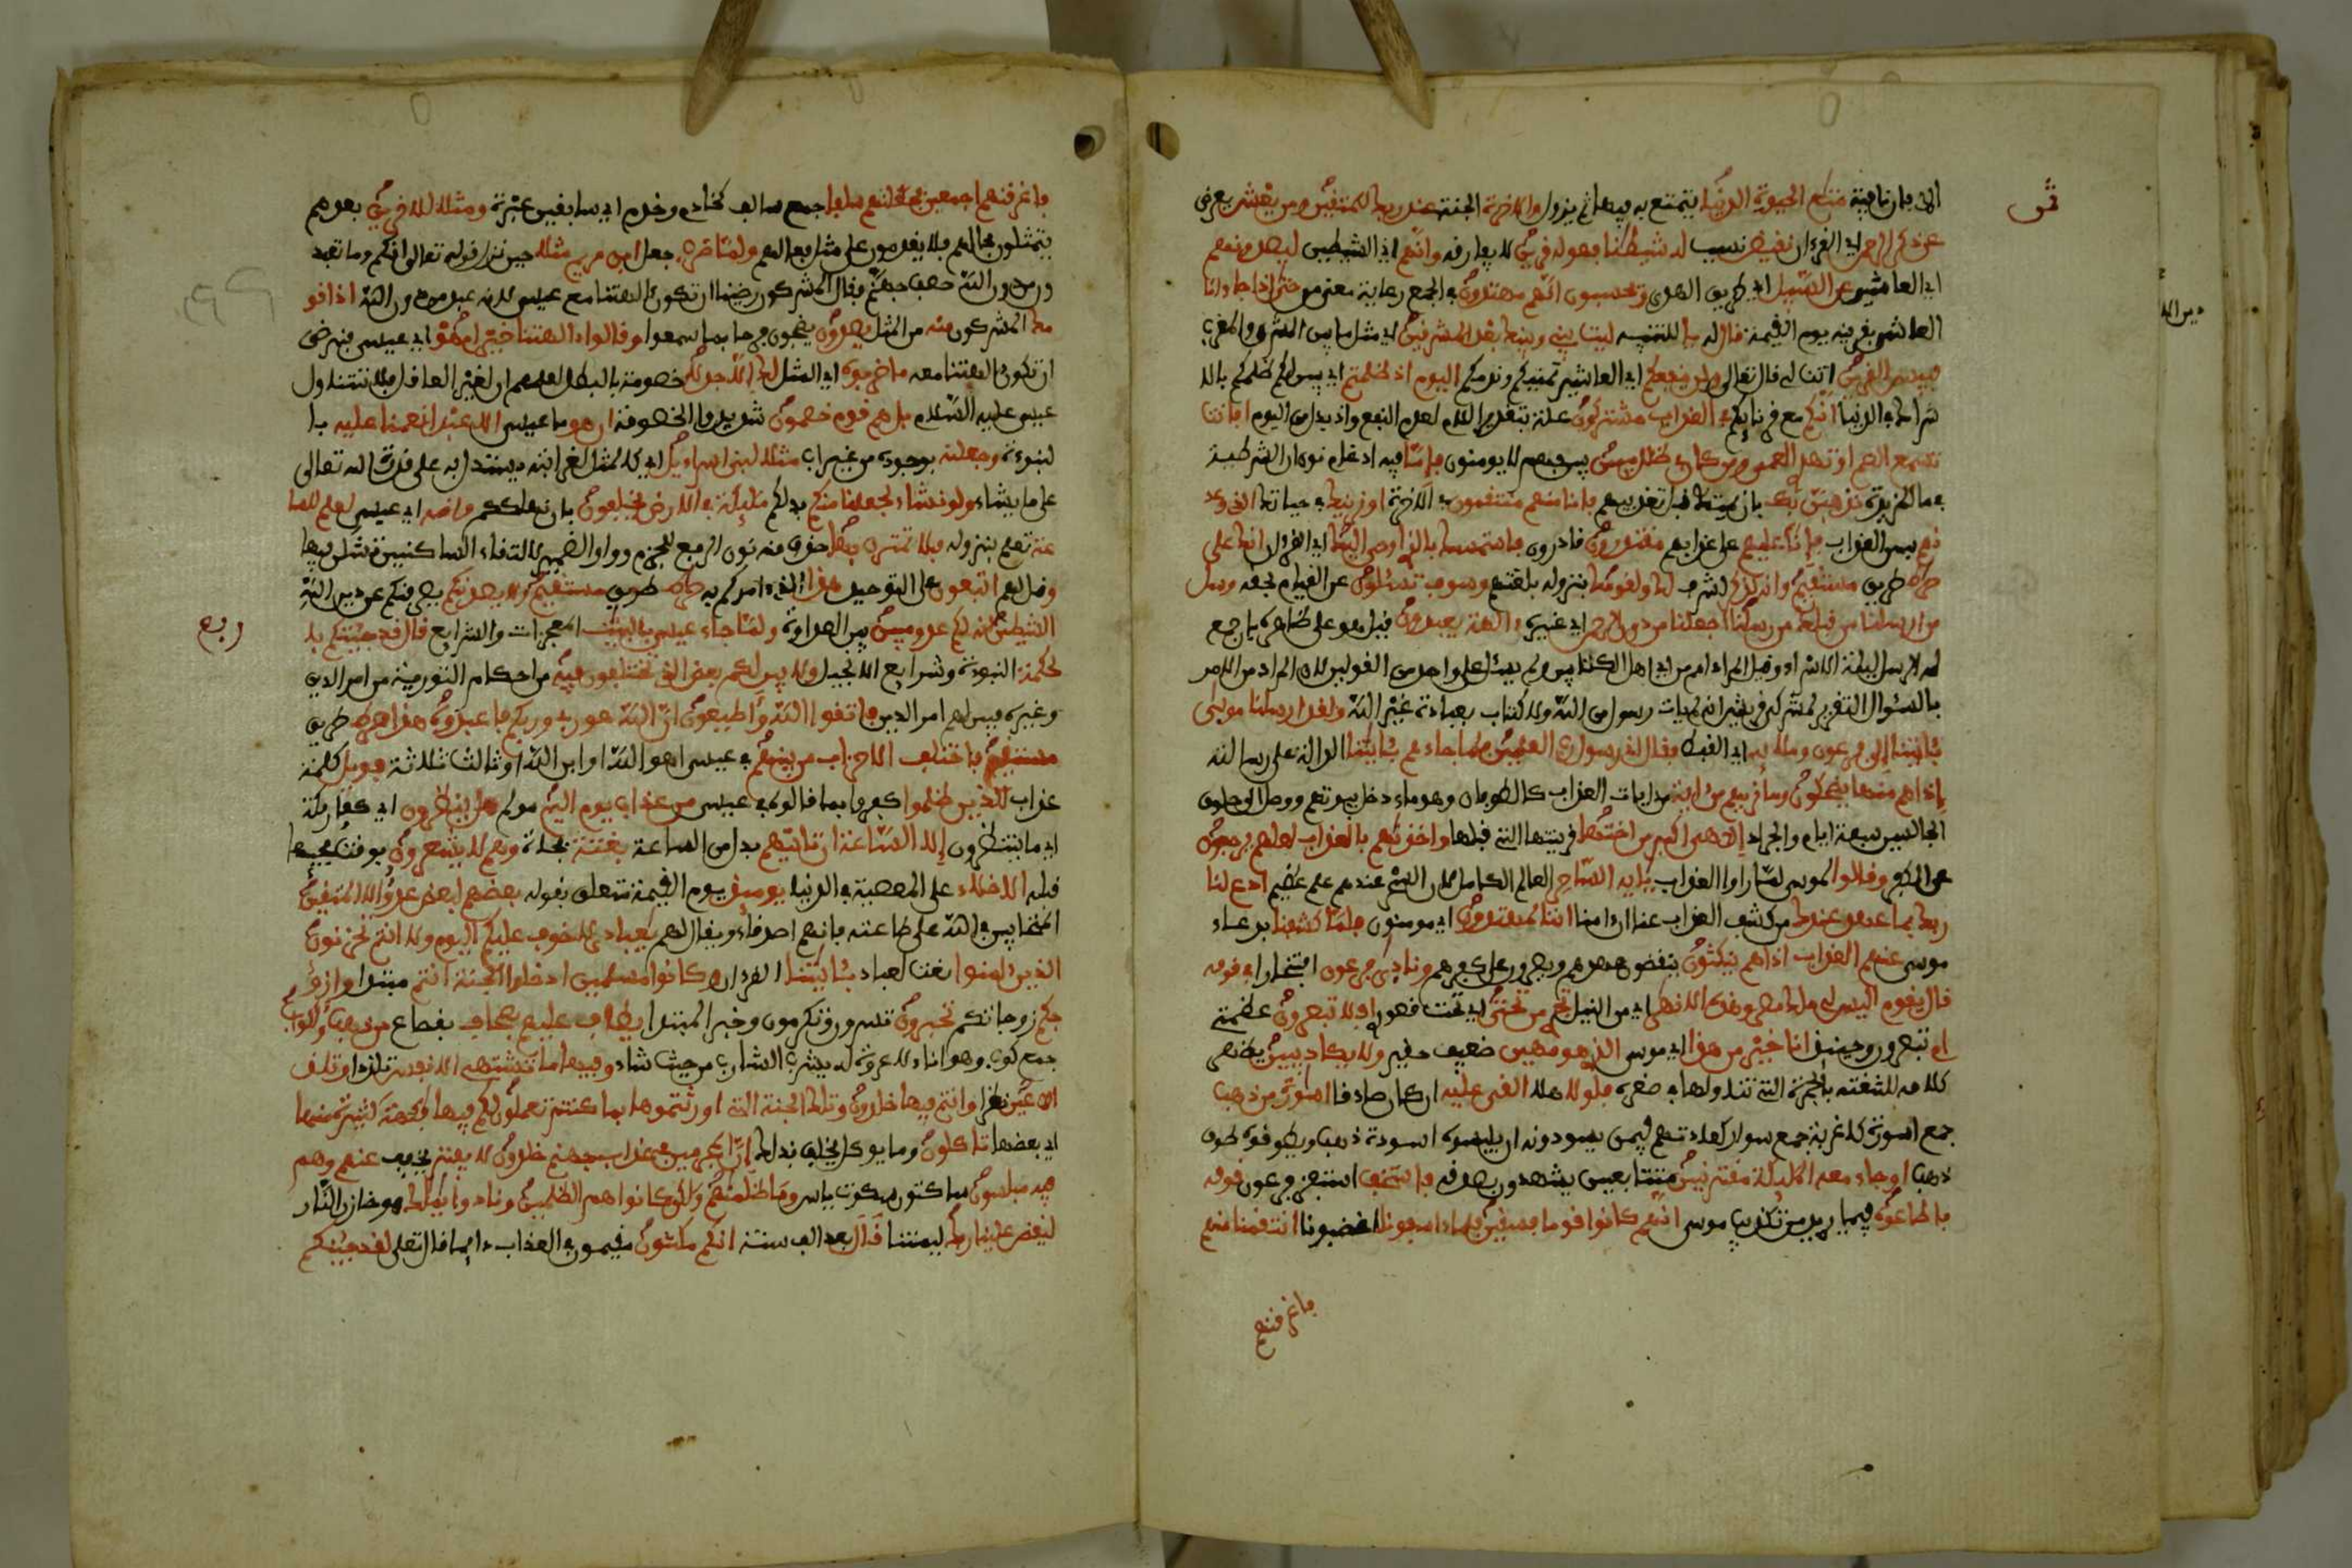 ثمن
إلى فإن نافية متاع الحيوة الدنيا يتمتع به فيها ثم يزول والاخرة الجنة عند ربك للمتقين ومن يعش يعرض
عن ذكر الرحمن اي القرءان نقيض نسبب له شيطنا فهو له قرين لا يفارقه وانهم اي الشيطين ليصدونهم
اي العاشين عن السبيل اي طريق الهدى ويحسبون انهم مهتدون في الجمع رعاية معنى من حتى اذا جاءنا
العاشي بقرينه يوم القيمة قال له يا للتنبيه ليت بيني وبينك بعد المشرقين اي مثل ما بين المشرق والمغرب
فبيس القرين انت لي قال تعالى ولن ينفعكم اي العاشين تمنيكم وندمكم اليوم اذ ظلمتم اي تبين لكم ظلمكم بالا
شراك في الدنيا انكم مع قرنايكم في العذاب مشتركون علة بتقدير اللام لعدم النفع واذ بدل من اليوم افانت
تسمع الصم او تهدي العمي ومن كان في ظلل مبين بين فهم لا يومنون فإما فيه ادغام نون ان الشرطية
في ما المزيدة نذهبن بك بان نميتك قبل تعذيبهم فانا منهم منتقمون في الاخرة او نرينك في حياتك الذي وعد
نهم به من العذاب فإنا عليهم على عذابهم مقتدرون قادرون فاستمسك بالذي اوحي اليك اي القرءان انك على
صراط طريق مستقيم وانه لذكر لشرف لك ولقومك بنزوله بلغتهم وسوف تسئلون عن القيام بحقه وسئل
من ارسلنا من قبلك من رسلنا اجعلنا من دون الرحمن اي غيره ءالهة يعبدون قيل هو على ظاهره بان جمع
له الرسل ليلة الاسرا وقيل المراد امم من اي اهل الكتابين ولم يسئل على واحد من القولين لان المراد من الامر
بالسئوال التقرير لمشركي قريش انه لم يات رسول من الله ولا كتاب بعبادة غير الله ولقد ارسلنا موسى
بئايتنا إلى فرعون وملايه اي القبط فقال اني رسول رب العلمين فلما جاءهم بئايتنا الدالة على رسالته
إذا هم منها يضحكون وما نريهم من ءاية من ءايات العذاب كالطوفان وهو ماء دخل بيوتهم ووصل الى حلوق
الجالسين سبعة ايام والجراد إلا هي اكبر من اختها قرينتها التي قبلها واخذنهم بالعذاب لعلهم يرجعون
عن الكفر وقالوا لموسى لما راوا العذاب يأيه الساحر العالم الكامل لان السحر عندهم علم عظيم ادع لنا
ربك بما عهد عندك من كشف العذاب عنا ان ءامنا اننا لمهتدون اي مومنون فلما كشفنا بدعاء
موسى عنهم العذاب اذا هم ينكثون ينقضون عهدهم ويصرون على كفرهم ونادى فرعون افتخارا في قومه
قال يقوم اليس لي ملك مصر وهذه الانهر اي من النيل تجري من تحتي اي تحت قصوري افلا تبصرون عظمتي
ام تبصرون وحينئذ انا خير من هذا اي موسى الذي هو مهين ضعيف حقير ولا يكاد يبين يظهر
كلامه للثغته بالجمرة التي تناولها في صغره فلولا هلا القي عليه ان كان صادقا اسورة من ذهب
جمع اسورة كاغربة جمع سوار كعادتهم فيمن يسودونه ان يلبسوه اسورة ذهب ويطوقوه طوق
ذهب او جاء معه الملئكة مقترنين متتابعين يشهدون بصدقه فاستخف استفز فرعون قومه
فاطاعوه فيما يريد من تكذيب موسى انهم كانوا قوما فسقين فلما ءاسفونا اغضبونا انتقمنا منهم
فاغرقنهم
فاغرقنهم اجمعين فجعلنهم سلفا جمع سالف كخادم وخدم اي سابقين عبرة ومثلا للاخرين بعدهم
يتمثلون بحالهم فلا يقدمون على مثل افعالهم ولما ضرب جعل ابن مريم مثلا حين نزل قوله تعالى انكم وما تعبد
ون من دون الله حصب جهنم فقال المشركون رضينا ان تكون ءالهتنا مع عيسى لانه عبد من دون الله اذا قو
مك المشركون منه من المثل يصدون يضجون فرحا بما سمعوا وقالوا ءالهتنا خير ام هو اي عيسى فنرضى
ان تكون ءالهتنا معه ما ضربوه اي المثل لك الا جدلا خصومة بالباطل لعلمهم ان ما لغير العاقل فلا يتناول
عيسى عليه السلام بل هم قوم خصمون شديدوا الخصومة ان هو ما عيسى الا عبد انعمنا عليه با
لنبوءة وجعلنه بوجوده من غير اب مثلا لبني إسراءيل اي كالمثل لغرابته يستدل به على قدرة الله تعالى
على ما يشاء ولو نشاء لجعلنا منكم بدلكم ملئكة في الارض يخلفون بان نهلككم وانه اي عيسى لعلم للسا
عة تعلم بنزوله فلا تمترن بها حذف منه نون الرفع للجزم وواو الضمير لالتقاء الساكنين تشكن فيها
وقل لهم اتبعون على التوحيد هذا الذي ءامركم به صراط طريق مستقيم ولا يصدنكم يصرفنكم عن دين الله
الشيطن انه لكم عدو مبين بين العداوة ولما جاء عيسى بالبينت المعجزات والشرايع قال قد جئتكم با
لحكمة النبوءة وشرايع الانجيل ولابين لكم بعض الذي تختلفون فيه من احكام التورية من امر الدين
وغيره فبين لهم امر الدين فاتقوا الله وأطيعون ان الله هو ربي وربكم فاعبدوه هذا صراط طريق
مستقيم فاختلف الاحزاب من بينهم في عيسى اهو الله او ابن الله او ثالث ثلاثة فويل كلمة
عذاب للذين ظلموا كفروا بما قالوه في عيسى من عذاب يوم اليم مولم هل ينظرون اي كفار مكة
اي ما ينتظرون إلا الساعة ان تاتيهم بدل من الساعة بغتة فجاة وهم لا يشعرون بوقت مجيئها
قبله الاخلاء على المعصية في الدنيا يومئذ يوم القيمة متعلق بقوله بعضهم لبعض عدو الا المتقين
المتحابين في الله على طاعته فانهم اصدقاء ويقال لهم يعبادي لا خوف عليكم اليوم ولا انتم تحزنون
الذين ءامنوا نعت لعباد بئايتنا القرءان وكانوا مسلمين ادخلوا الجنة انتم مبتدا وازو
جكم زوجاتكم تحبرون تسرون وتكرمون وخبر المبتدا يطاف عليهم بصحاف بقصاع من ذهب واكواب
جمع كوب وهو اناء لا عروة له ليشرب الشارب من حيث شاء وفيها ما تشتهيه الانفس تلذذا وتلذ
الاعين نظرا وانتم فيها خلدون وتلك الجنة التي اورثتموها بما كنتم تعملون لكم فيها فكهة كثيرة منها
اي بعضها تاكلون وما يوكل يخلف بدله إن المجرمين في عذاب جهنم خلدون لا يفتر يخفف عنهم وهم
فيه مبلسون ساكتون سكوت ياس وما ظلمنهم ولكن كانوا هم الظلمين ونادوا يملك هو خازن النار
ليقض علينا ربك ليمتنا قال بعد الف سنة انكم مكثون مقيمون في العذاب دايما قال تعلى لقد جئنكم
ربع